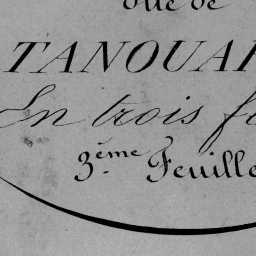 dite de
TANOUAI
En trois f
3.ème Feuille